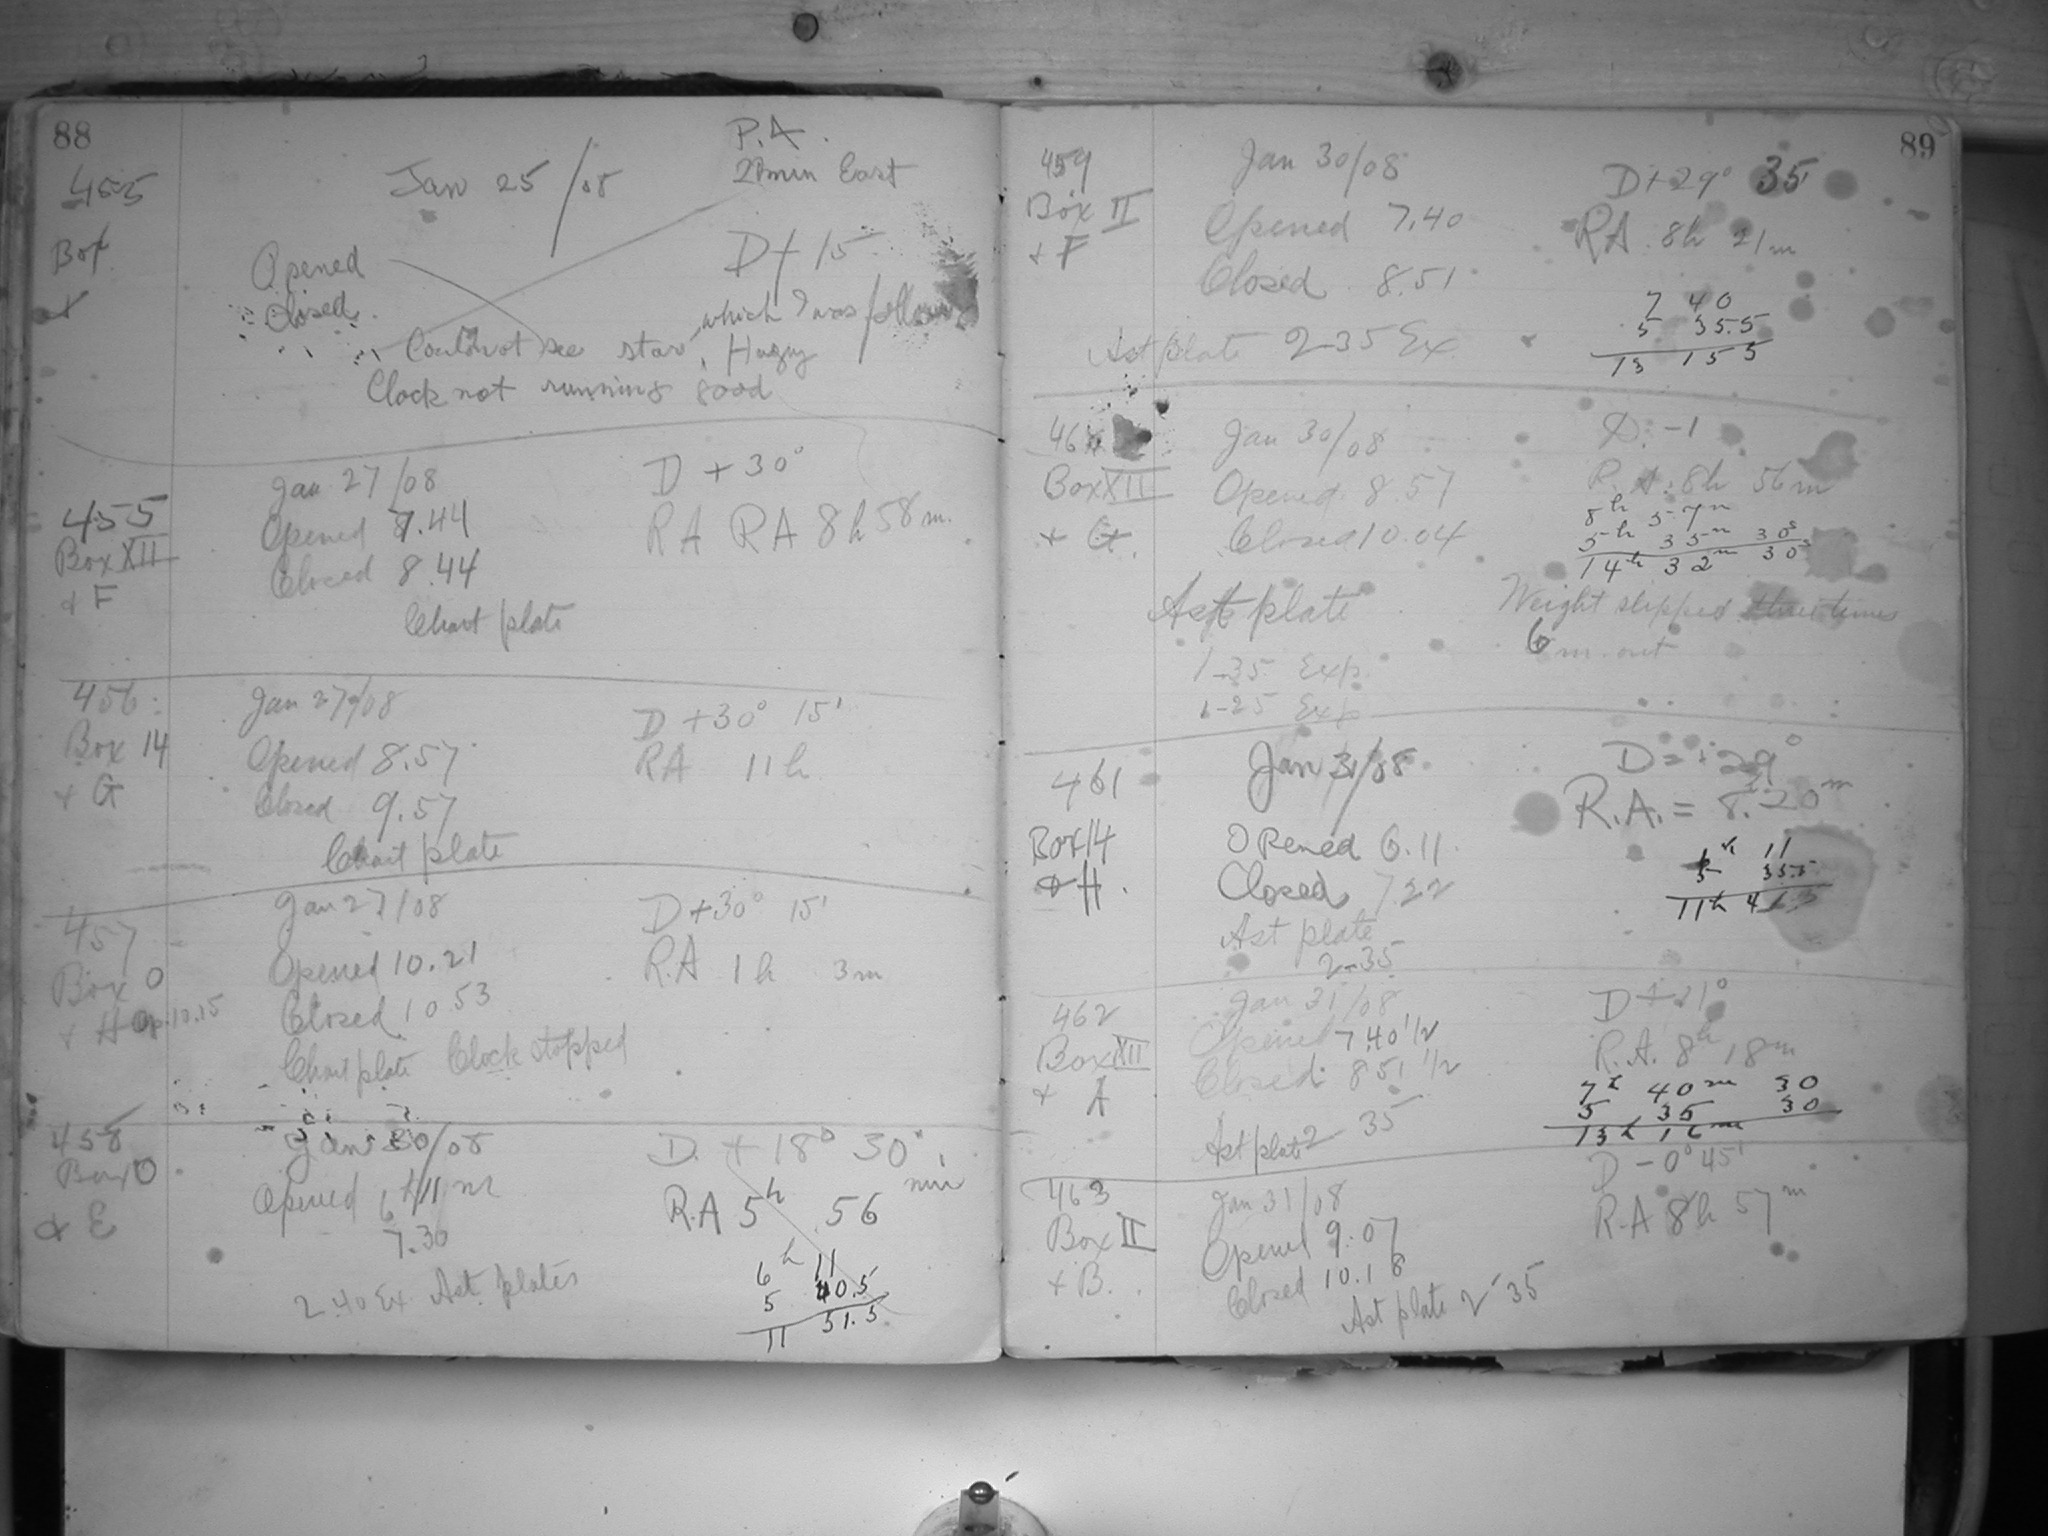 88
P.A.
455
Jan 25/08
2 min East
Box
D + 15
Opened
Closed
which I was following
Could not see star, Hazy
Clock not running good
455
Jan 27/08
D + 30°
Box XII
Opened 7.44
RA RA 8h 58m.
+ F
Closed 8.44
Chart plate
456
Jan 27/08
D + 30° 15'
Box 14
Opened 8.57
RA 11h
+ G
Closed 9.57
Chart plate
457
Jan 27/08
D + 30° 15'
Box 0
Opened 10.21
R.A 1h 3m
+ H Op. 10.15
Closed 10 53
Chart plate Clock stopped
458
Jan 30/08
D. + 18° 30'
Box 0
Opened 6 11 m
RA 5h 56 min
+ E
7.30
2 40 Ex Ast plates
6h 11
5 40.5
11 51.5
89
459
Jan 30/08
D + 29° 35
Box II
Opened 7.40
RA 8h 21m
+ F
Closed 8.51
7 40
5 35.5
13 15 5
Ast plate 2-35 Ex
46
Jan 30/08
D. -1
Box XII
Opened 8.57
R.A. 8h 56m
+ G.
Closed 10.04
8h 57m
5h 35m 30s
14h 32m 30s
Ast plate
Weight slipped three times
6 m. out
1-35 Exp.
1-25 Exp
461
Jan 31/08
D = + 29°
R.A. = 8h 20m
Box 14
Opened 6.11
+ H.
Closed 7.22
6h 11
5 35.5
11h 4
Ast plate
2-35
462
Jan 31/08
D + 21°
Box XII
Opened 7.40 1/2
R.A. 8h 18m
+ A
Closed 8 51 1/2
7h 40m 30
5 35 30
13h 16m
Ast plate 2 35
463
Jan 31/08
D - 0° 45'
Box II
Opened 9.07
R.A 8h 57m
+ B.
Closed 10.18
Ast plate 2 35